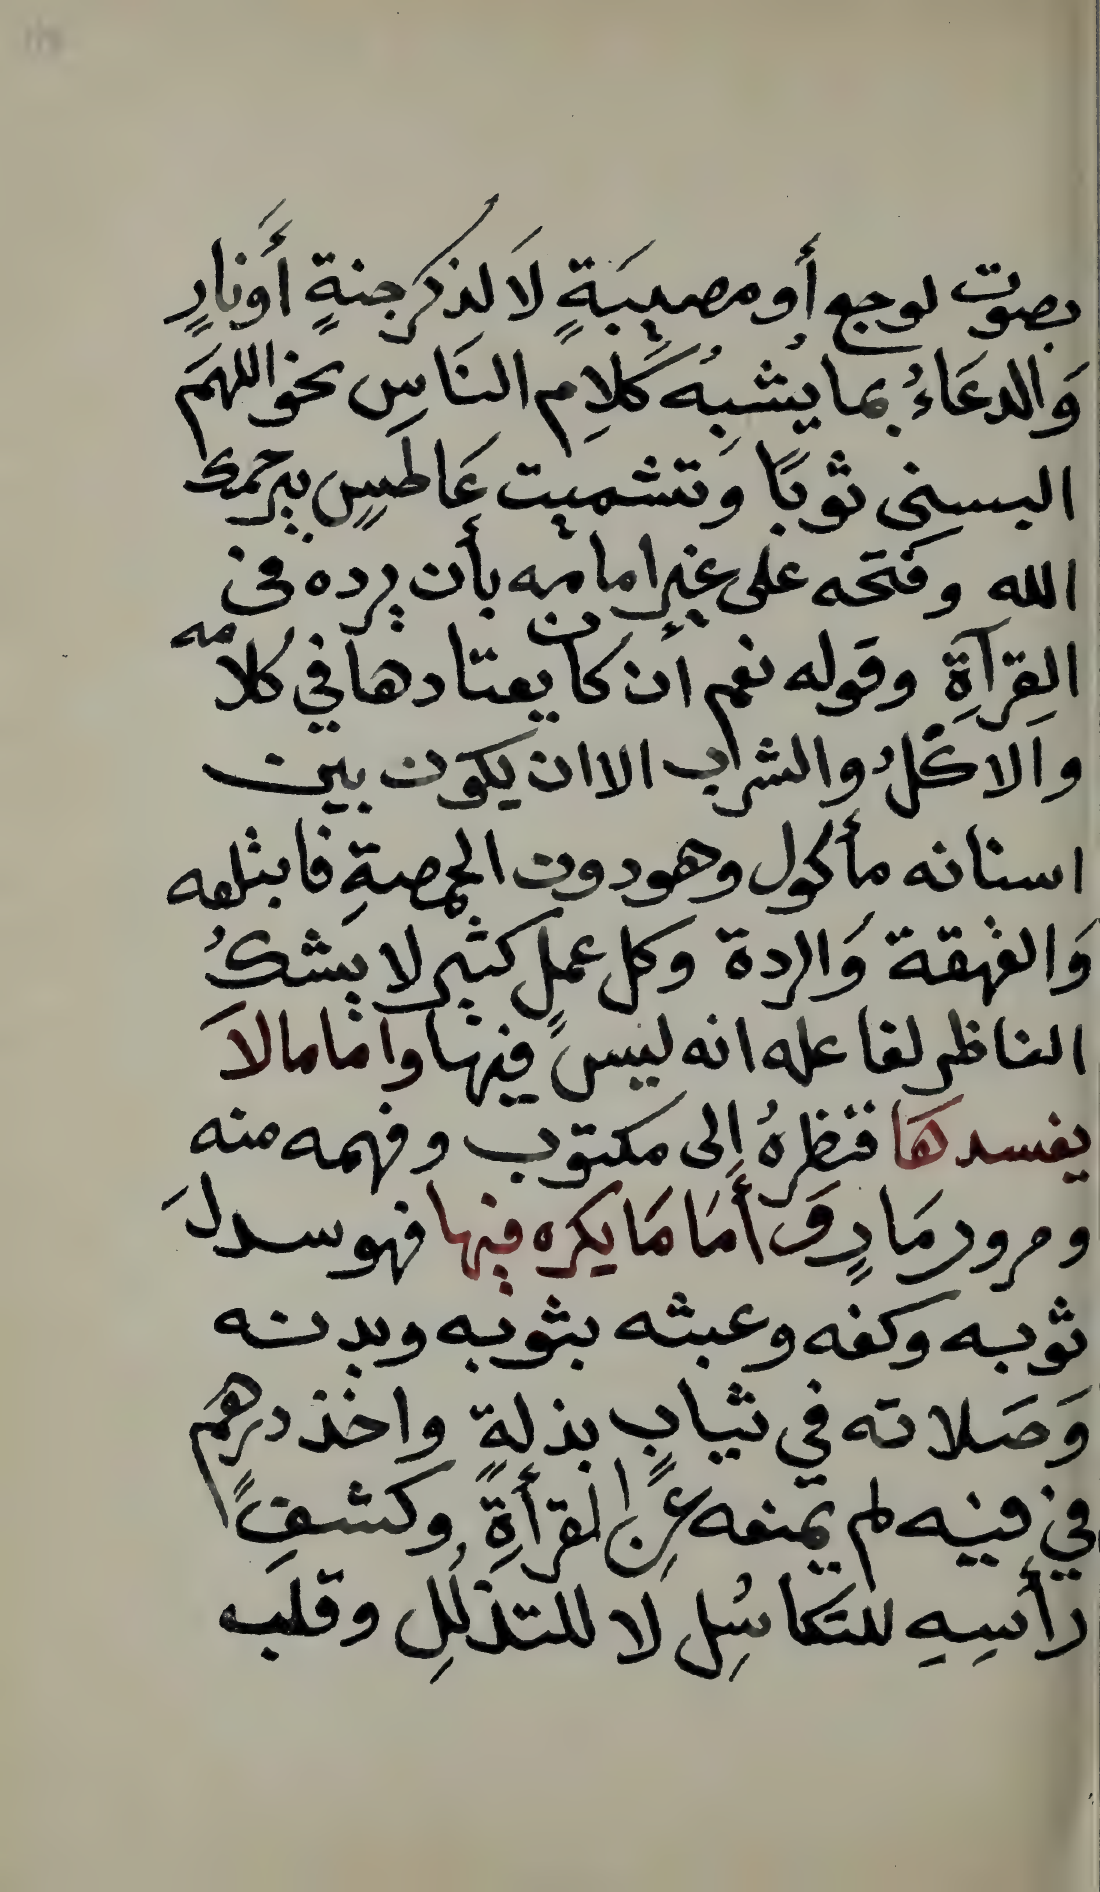 بصوت لوجع أو مصيبةٍ لَا لذكر جنةٍ أَونارٍ
وَالدعَاءُ بما يُشبِهُ كَلَامِ النَاسِ نحواللهمَ
البسني ثوبًا وَتشميت عَاطسٍ يرحمك
الله وفتحه على غير امامه بأن يرده في
القِرآةِ وقوله نعم ان كان يعتادها في كُلامه
والاكلُ والشراب الا ان يكون بين
اسنانه مأكول وهودون الحمصةِ فابثلعه
وَالقهقة وَالردة وكل عملٍ كثير لا يشكُ
الناظر لفاعله انه ليسَ فيها واما مالاَ
يفسدهَا فنظرهُ إلى مكتوب وفهمه منه
ومرور مَارٍ وَأَمَا مَا يكره فيها فهو سدلَ
ثوبه وكفه وعبثه بثوبه وبدنه
وَصَلاته في ثيابٍ بذلةٍ واخذ درهم
في فيه لم يمنعه عَنِ القرأةِ وكشفِ
رأسِهِ للتكاسُلِ لَا للتذللِ وقلب